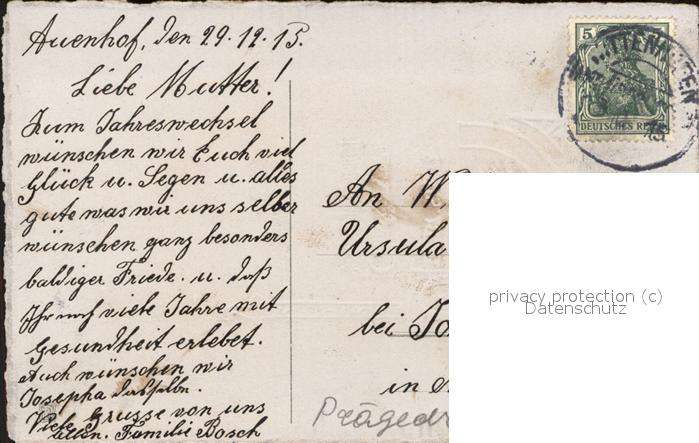 Auenhof, den 29.12.15.
Liebe Mutter!
Zum Jahreswechsel
wünschen wir Euch viel
Glück u. Segen u. alles
gute was wir uns selber
wünschen ganz besonders
baldiger Friede. u. daß
Ihr noch viele Jahre mit
Gesundheit erlebet.
Auch wünschen wir
Josepha dasselbe.
Viele Grüsse von uns
allen. Familie Bosch
An W
Ursula
bei Jo
in
Prägedr
5
DEUTSCHES REI
privacy protection (c)
Datenschutz